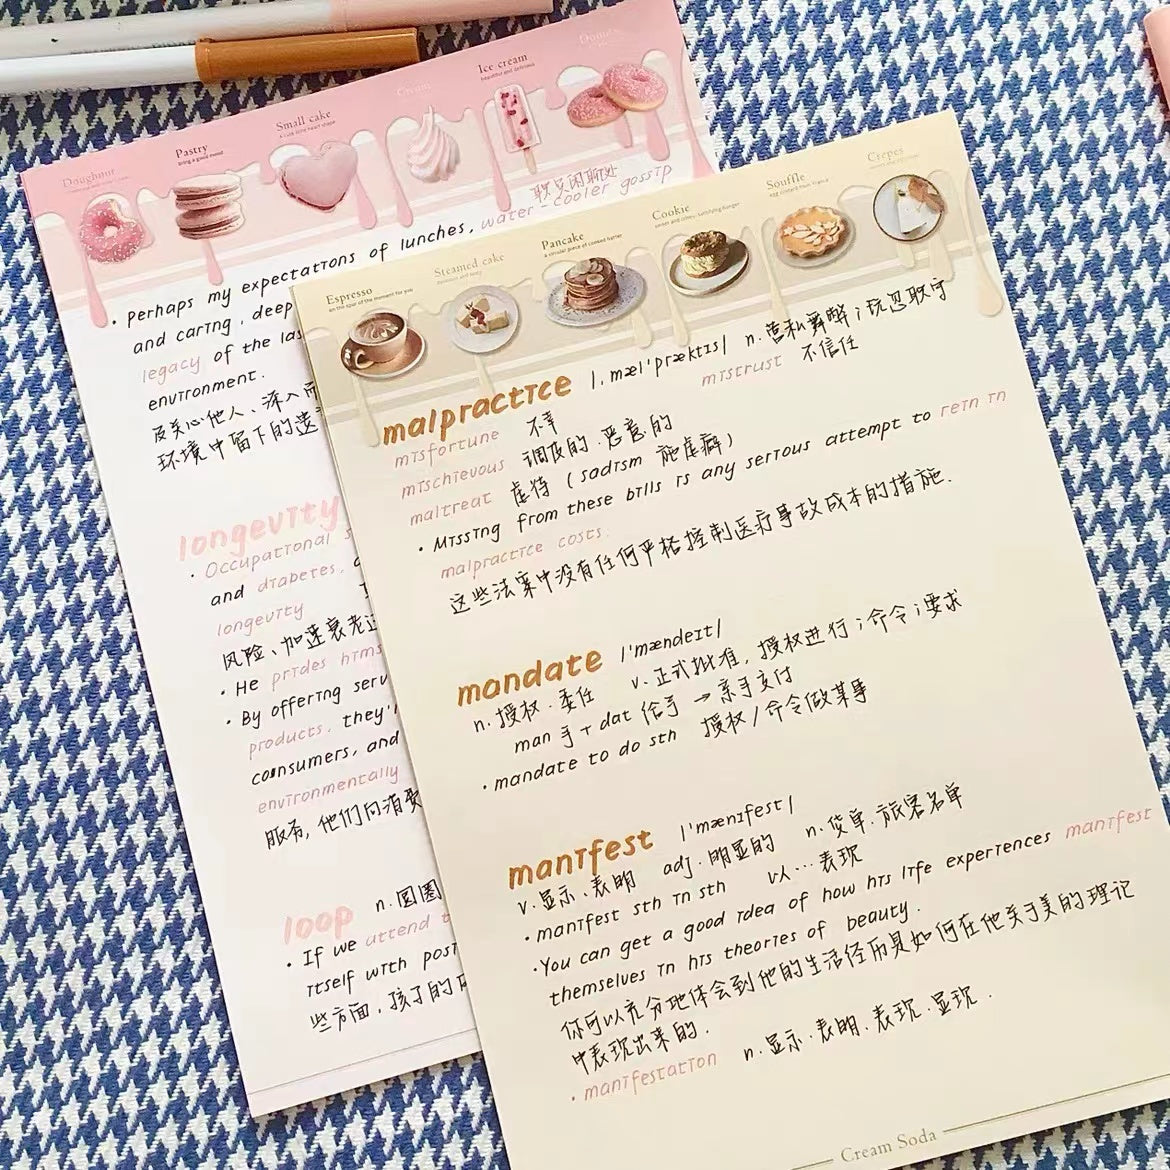 Doughnut
Pastry
bring a good mood
Small cake
A cute little heart shape
Cream
Ice cream
beautiful and delicious
Donuts
职员闲聊处
perhaps my expectations of lunches, water-cooler gossip
and caring, deep
legacy of the las
environment.
及关心他人、深入而
环境中留下的遗
longevity
Occupational s
and diabetes,
longevity
风险、加速衰老
He prides hims
By offering serv
products, they'
consumers, and
environmentally
服务, 他们向消费
loop n.圆圈
If we attend t
itself with posi
些方面, 孩子的
Espresso
on the spur of the moment for you
Steamed cake
Delicious and tasty
Pancake
a circular piece of cooked batter
Cookie
sweet and crispy, satisfying hunger
Souffle
egg custard from France
Crepes
malpractice /ˌmælˈpræktɪs/ n.营私舞弊;玩忽职守
misfortune 不幸 mistrust 不信任
mischievous 调皮的.恶意的
maltreat 虐待 (sadism 施虐癖)
· Missing from these bills is any serious attempt to rein in
malpractice costs.
这些法案中没有任何严格控制医疗事故成本的措施.
mandate /ˈmændeɪt/
n.授权.委任 v.正式批准, 授权进行;命令;要求
man 手 + dat 给予 → 亲手交付
· mandate to do sth 授权/命令做某事
manifest /ˈmænɪfest/
v.显示、表明 adj.明显的 n.货单.旅客名单
· manifest sth in sth 以…表现
· You can get a good idea of how his life experiences manifest
themselves in his theories of beauty.
你可以充分地体会到他的生活径历是如何在他关于美的理记
中表现出来的.
· manifestation n.显示.表明.表现.显现.
Cream Soda